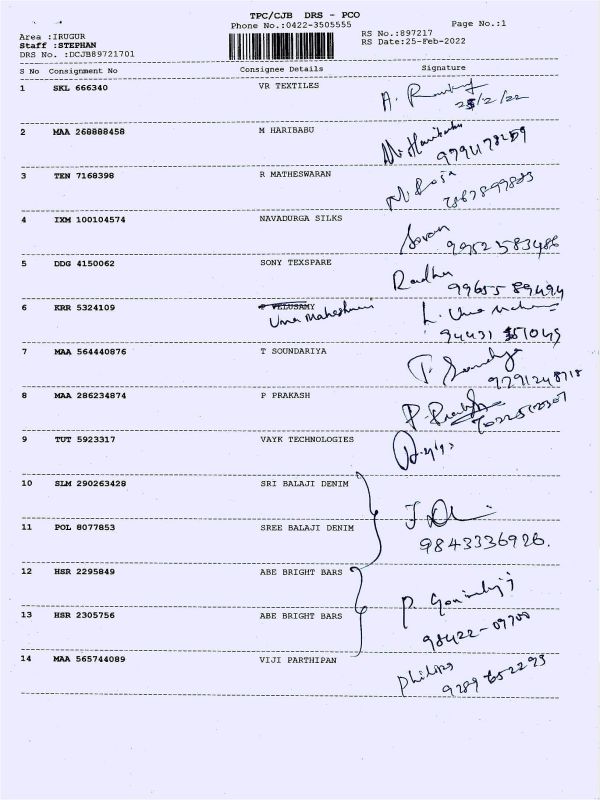 TPC/CJB DRS - PCO
Phone No.:0422-3505555 Page No.:1
Area :IRUGUR RS No.:897217
Staff :STEPHAN RS Date:25-Feb-2022
DRS No. :DCJB89721701
S No Consignment No Consignee Details Signature
1 SKL 666340 VR TEXTILES
25/2/22
2 MAA 268888458 M HARIBABU M. Haribabu
3 TEN 7168398 R MATHESWARAN
4 IXM 100104574 NAVADURGA SILKS
9952583486
5 DDG 4150062 SONY TEXSPARE Radha
9965589494
6 KRR 5324109 P VELUSAMY
Uma Maheshwari
94431 51049
7 MAA 564440876 T SOUNDARIYA
8 MAA 286234874 P PRAKASH
9 TUT 5923317 VAYK TECHNOLOGIES
10 SLM 290263428 SRI BALAJI DENIM
11 POL 8077853 SREE BALAJI DENIM
9843336926.
12 HSR 2295849 ABE BRIGHT BARS
13 HSR 2305756 ABE BRIGHT BARS
98422-09700
14 MAA 565744089 VIJI PARTHIPAN
9289652293